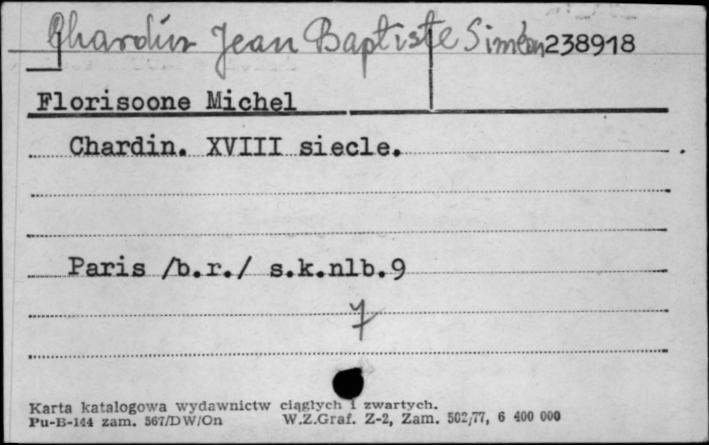 Chardin Jean Baptiste Siméon 238918
Florisoone Michel
Chardin. XVIII siecle.
Paris /b.r./ s.k.nlb.9
7
Karta katalogowa wydawnictw ciągłych i zwartych.
Pu-B-144 zam. 567/DW/On W.Z.Graf. Z-2, Zam. 502/77, 6 400 000